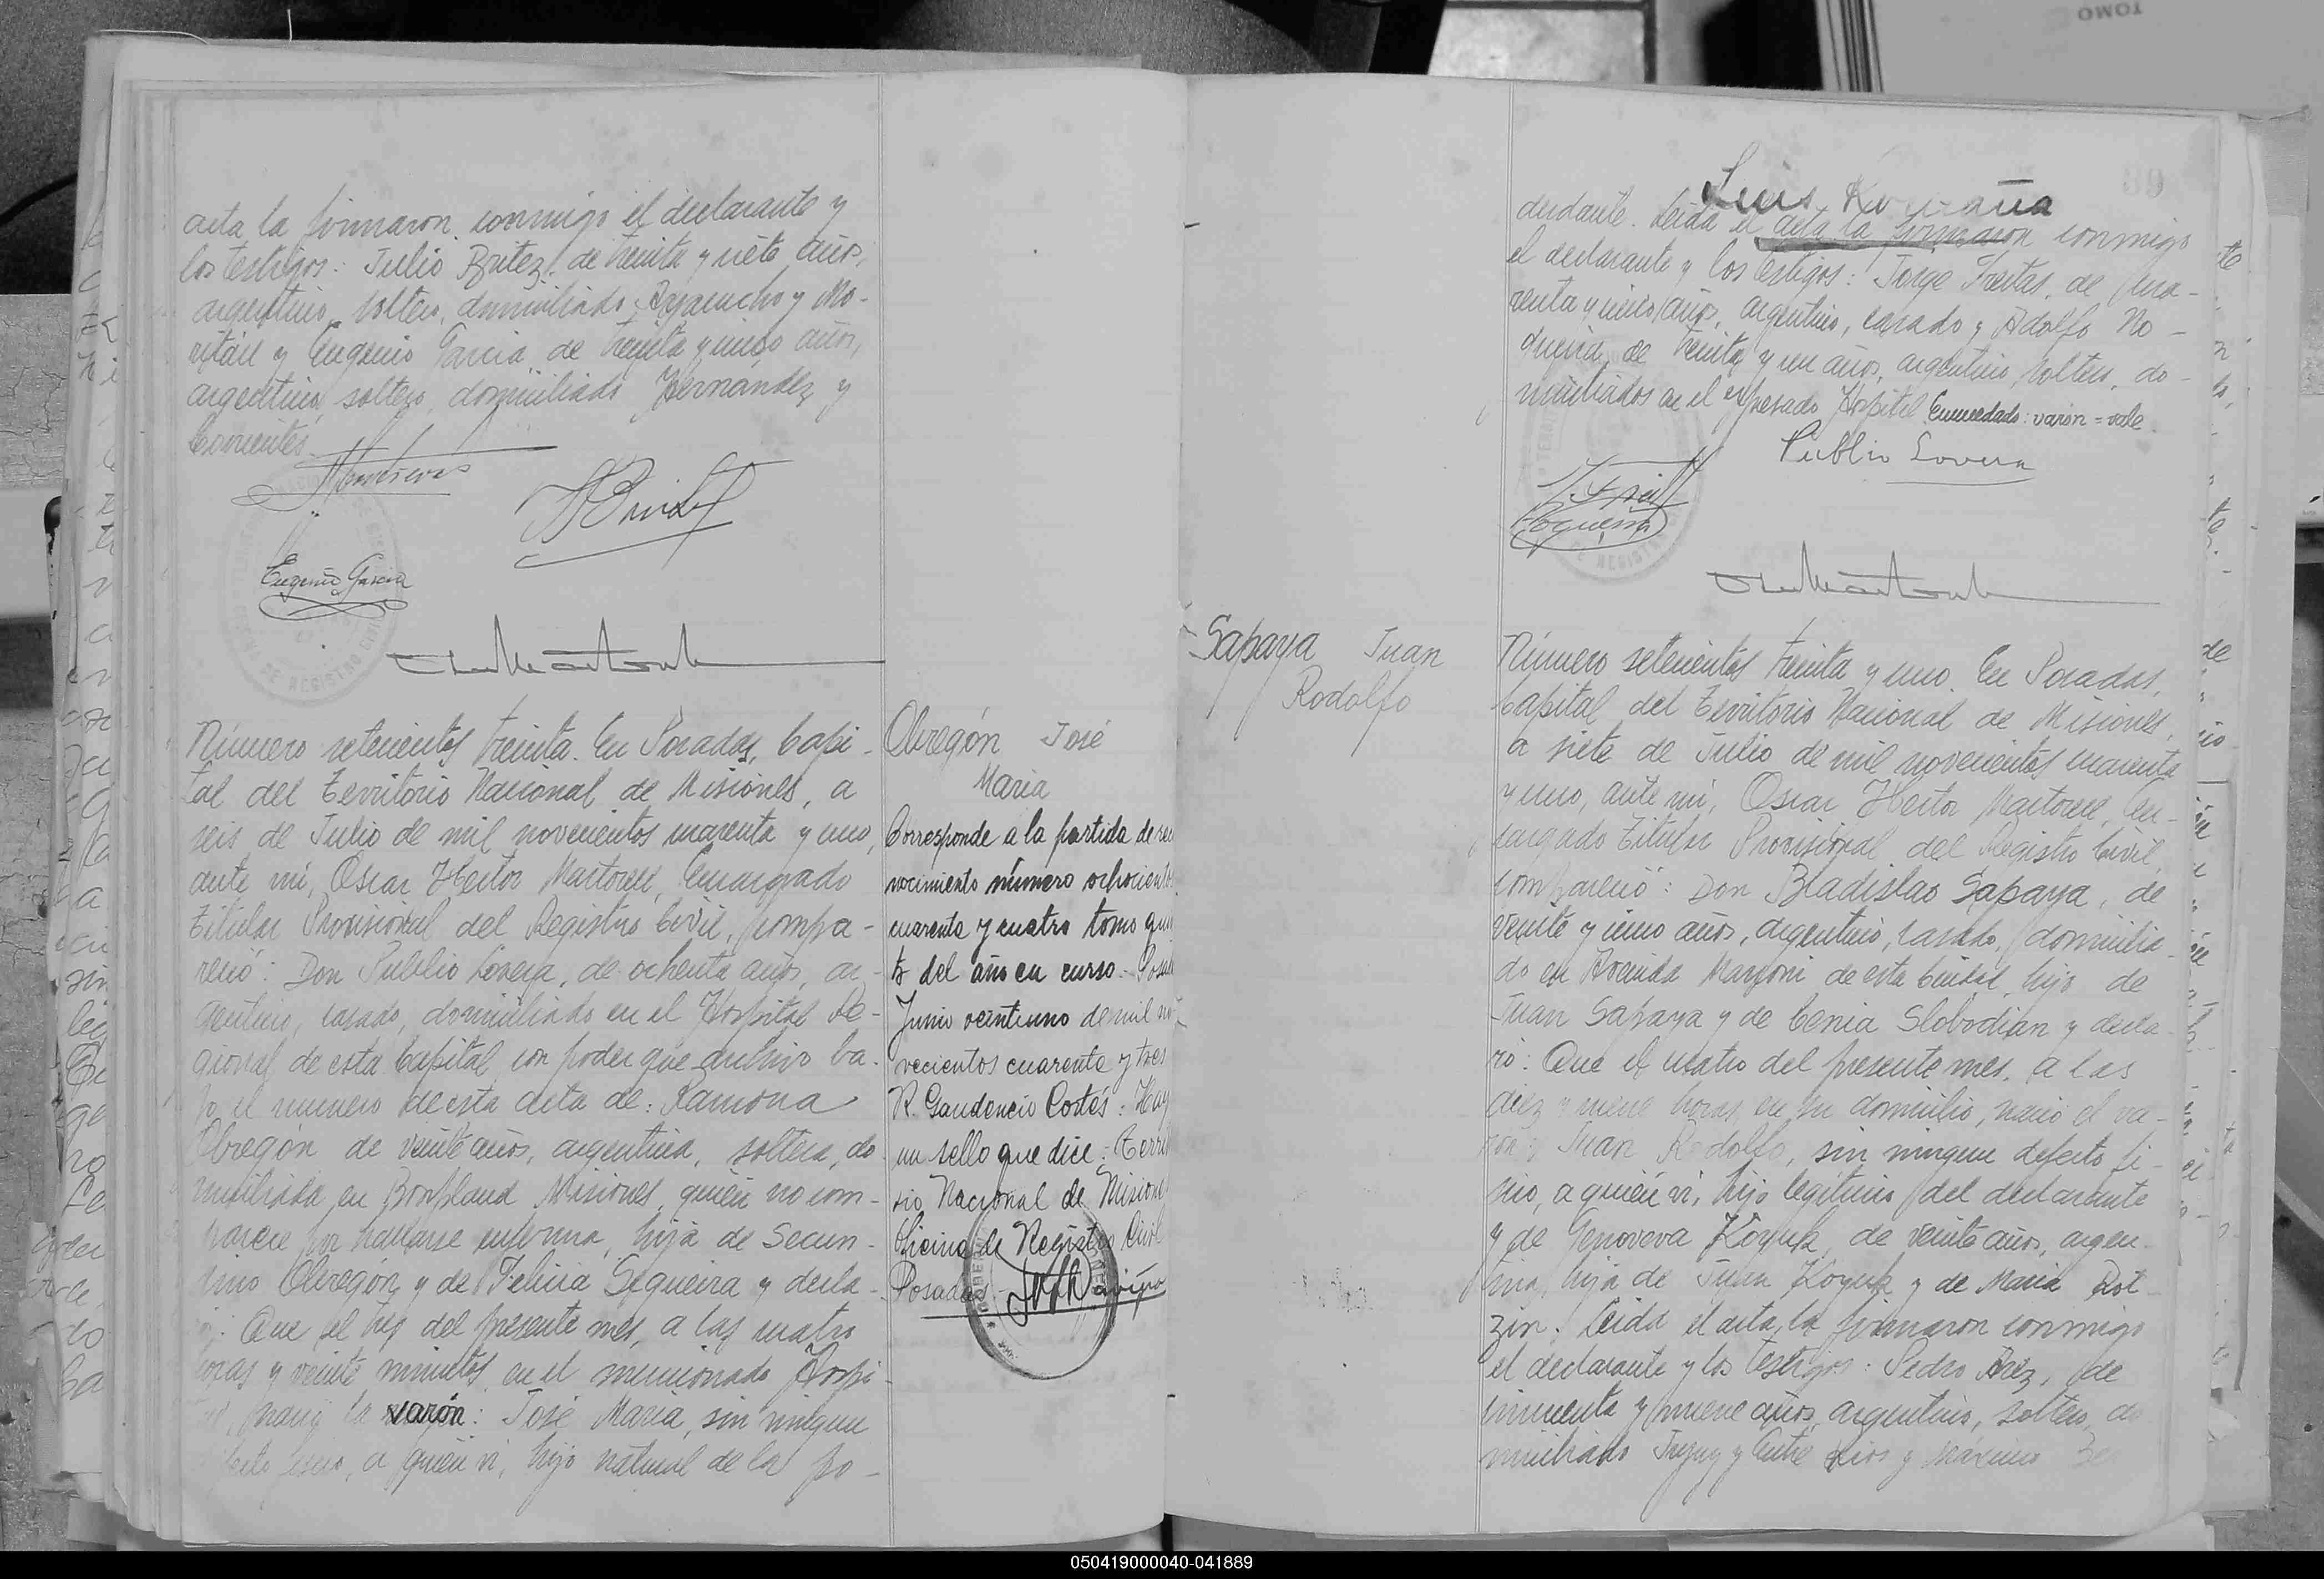 acta la firmaron conmigo el declarante y
los testigos: Julio Britez, de treinta y siete años,
argentino, soltero, domiciliado Ayacucho y Mo-
ritán y Eugenio Garcia, de treinta y cinco años,
argentino, soltero, domiciliado Hernández y
Corrientes.
Eugenio Garcia
Número setecientos treinta. En Posadas, Capi-
tal del Territorio Nacional de Misiones, a
seis de Julio de mil novecientos cuarenta y uno,
ante mi, Oscar Hector Martorell, Encargado
Titular Provisional del Registro Civil, compa-
reció: Don Publio Lovera, de ochenta años, ar-
gentino, casado, domiciliado en el Hospital Re-
gional de esta Capital, con poder que archivo ba-
jo el numero de esta acta de: Ramona
Obregón de veinte años, argentina, soltera, do-
miciliada en Bonpland Misiones, quién no com-
parece por hallarse enferma, hija de Secun-
dino Obregón y de Felicia Sequeira y decla-
ró: Que el tres del presente mes, a las cuatro
horas y veinte minutos, en el mencionado Hospi-
tal, nació el varón: José Maria, sin ningun
defecto fisico, a quién vi, hijo natural de la po-
Obregón José
Maria
Corresponde a la partida de reco
nocimiento número ochocientos
cuarenta y cuatro tomo quin
to del año en curso.- Posadas
Junio veintiuno de mil no-
vecientos cuarenta y tres
R. Gaudencio Cortés: Hay
un sello que dice: Territo
rio Nacional de Misiones
Oficina de Registro Civil
Posadas.-
Luis Romaña
derdante. Leida el acta la firmaron conmigo
el declarante y los testigos: Jorge Freitas, de cua-
renta y cinco años, argentino, casado y Adolfo No-
queira, de treinta y un años, argentino, soltero, do-
miciliados en el expresado Hospital. Enmendado: varón = vale.
Publio Lovera
Noqueira
Sapaya Juan
Rodolfo
Número setecientos treinta y uno. En Posadas,
Capital del Territorio Nacional de Misiones,
a siete de Julio de mil novecientos cuarenta
y uno, ante mi, Oscar Hector Martorell, En-
cargado Titular Provisional del Registro Civil,
compareció: Don Bladislao Sapaya, de
veinte y cinco años, argentino, casado, domicilia-
do en Avenida Marconi de esta Ciudad, hijo de
Juan Sapaya y de Cenia Slobodian y decla-
ró: Que el cuatro del presente mes, a las
diez y nueve horas, en su domicilio, nació el va-
rón: Juan Rodolfo, sin ningun defecto fi-
sico, a quién vi, hijo legitimo del declarante
y de Genoveva Koyuk, de veinte años, argen-
tina, hija de Juan Koyuk y de Maria Rot
zin. Leida el acta, la firmaron conmigo
el declarante y los testigos: Pedro Baez, de
cincuenta y nueve años, argentino, soltero, do
miciliado Jujuy y Entre Rios y Máximo
050419000040-041889